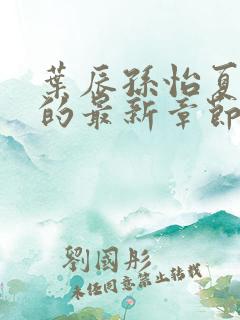 葉辰孫怡夏
的最新章節
劉國彤
未經同意禁止轉載